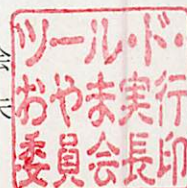 ツール・ド・
おやま実行
委員会長印